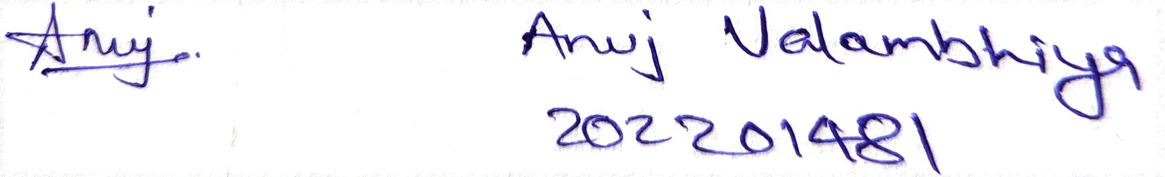 Anuj.
Anuj Valambhiya
202201481